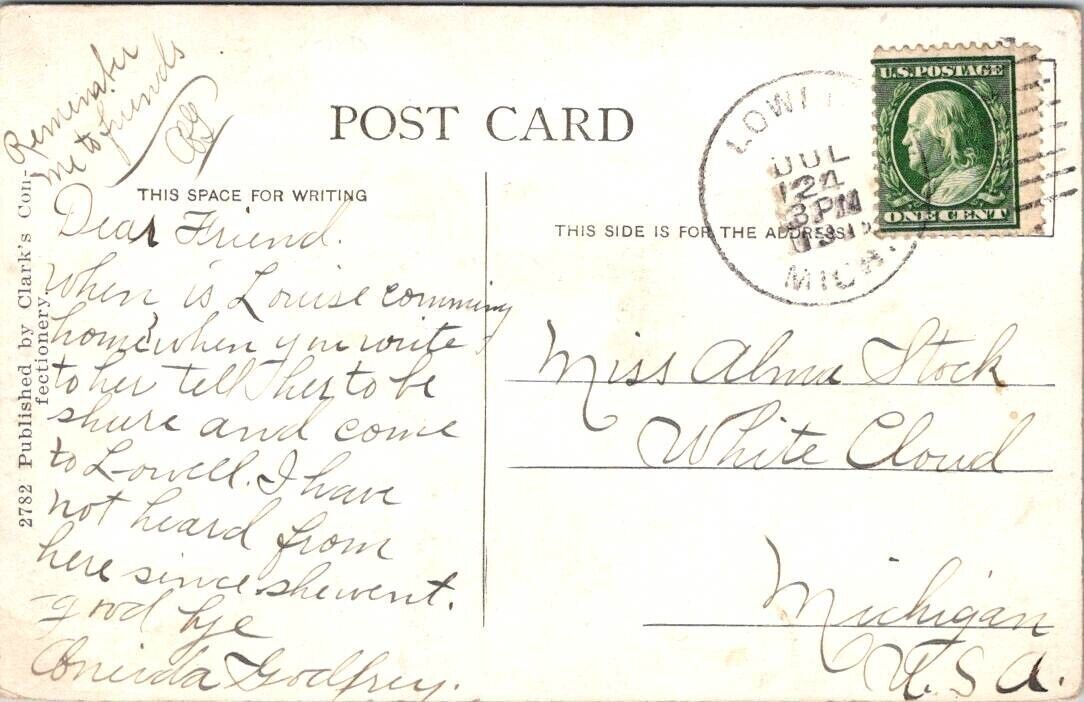 Remember
me to friends
POST CARD
THIS SPACE FOR WRITING
THIS SIDE IS FOR THE ADDRESS
U.S. POSTAGE
ONE CENT
JUL
24
3 PM
MICH.
2782 Published by Clark's Con-
fectionery.
Dear Friend.
When is Louise comming
home when you write
to her tell her to be
shure and come
to Lowell. I have
not heard from
here since she went.
good bye
Oneida Godfrey.
Miss Alma Stock
White Cloud
Michigan
U.S.A.